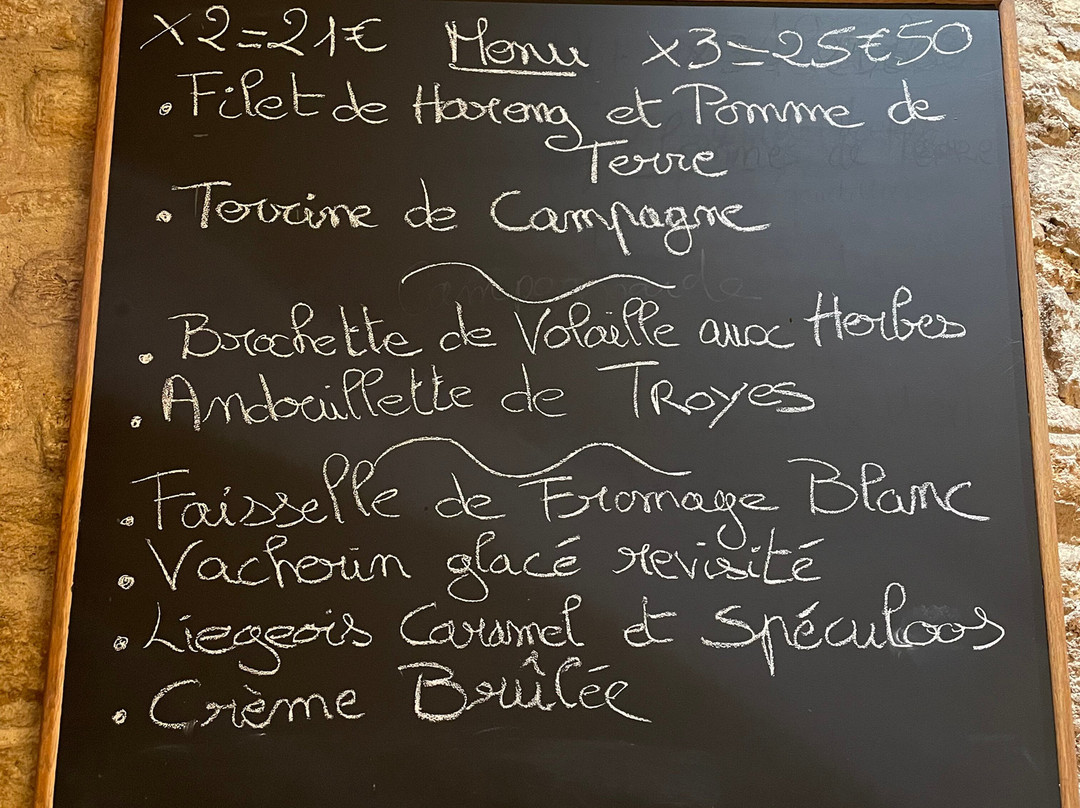 x2=21€ Menu x3=25€50
• Filet de Hareng et Pomme de
Terre
• Terrine de Campagne
• Brochette de Volaille aux Herbes
• Andouillette de TROYES
• Faisselle de Fromage Blanc
• Vacherin glacé revisité
• Liegeois Caramel et Spéculoos
• Crème Brûlée